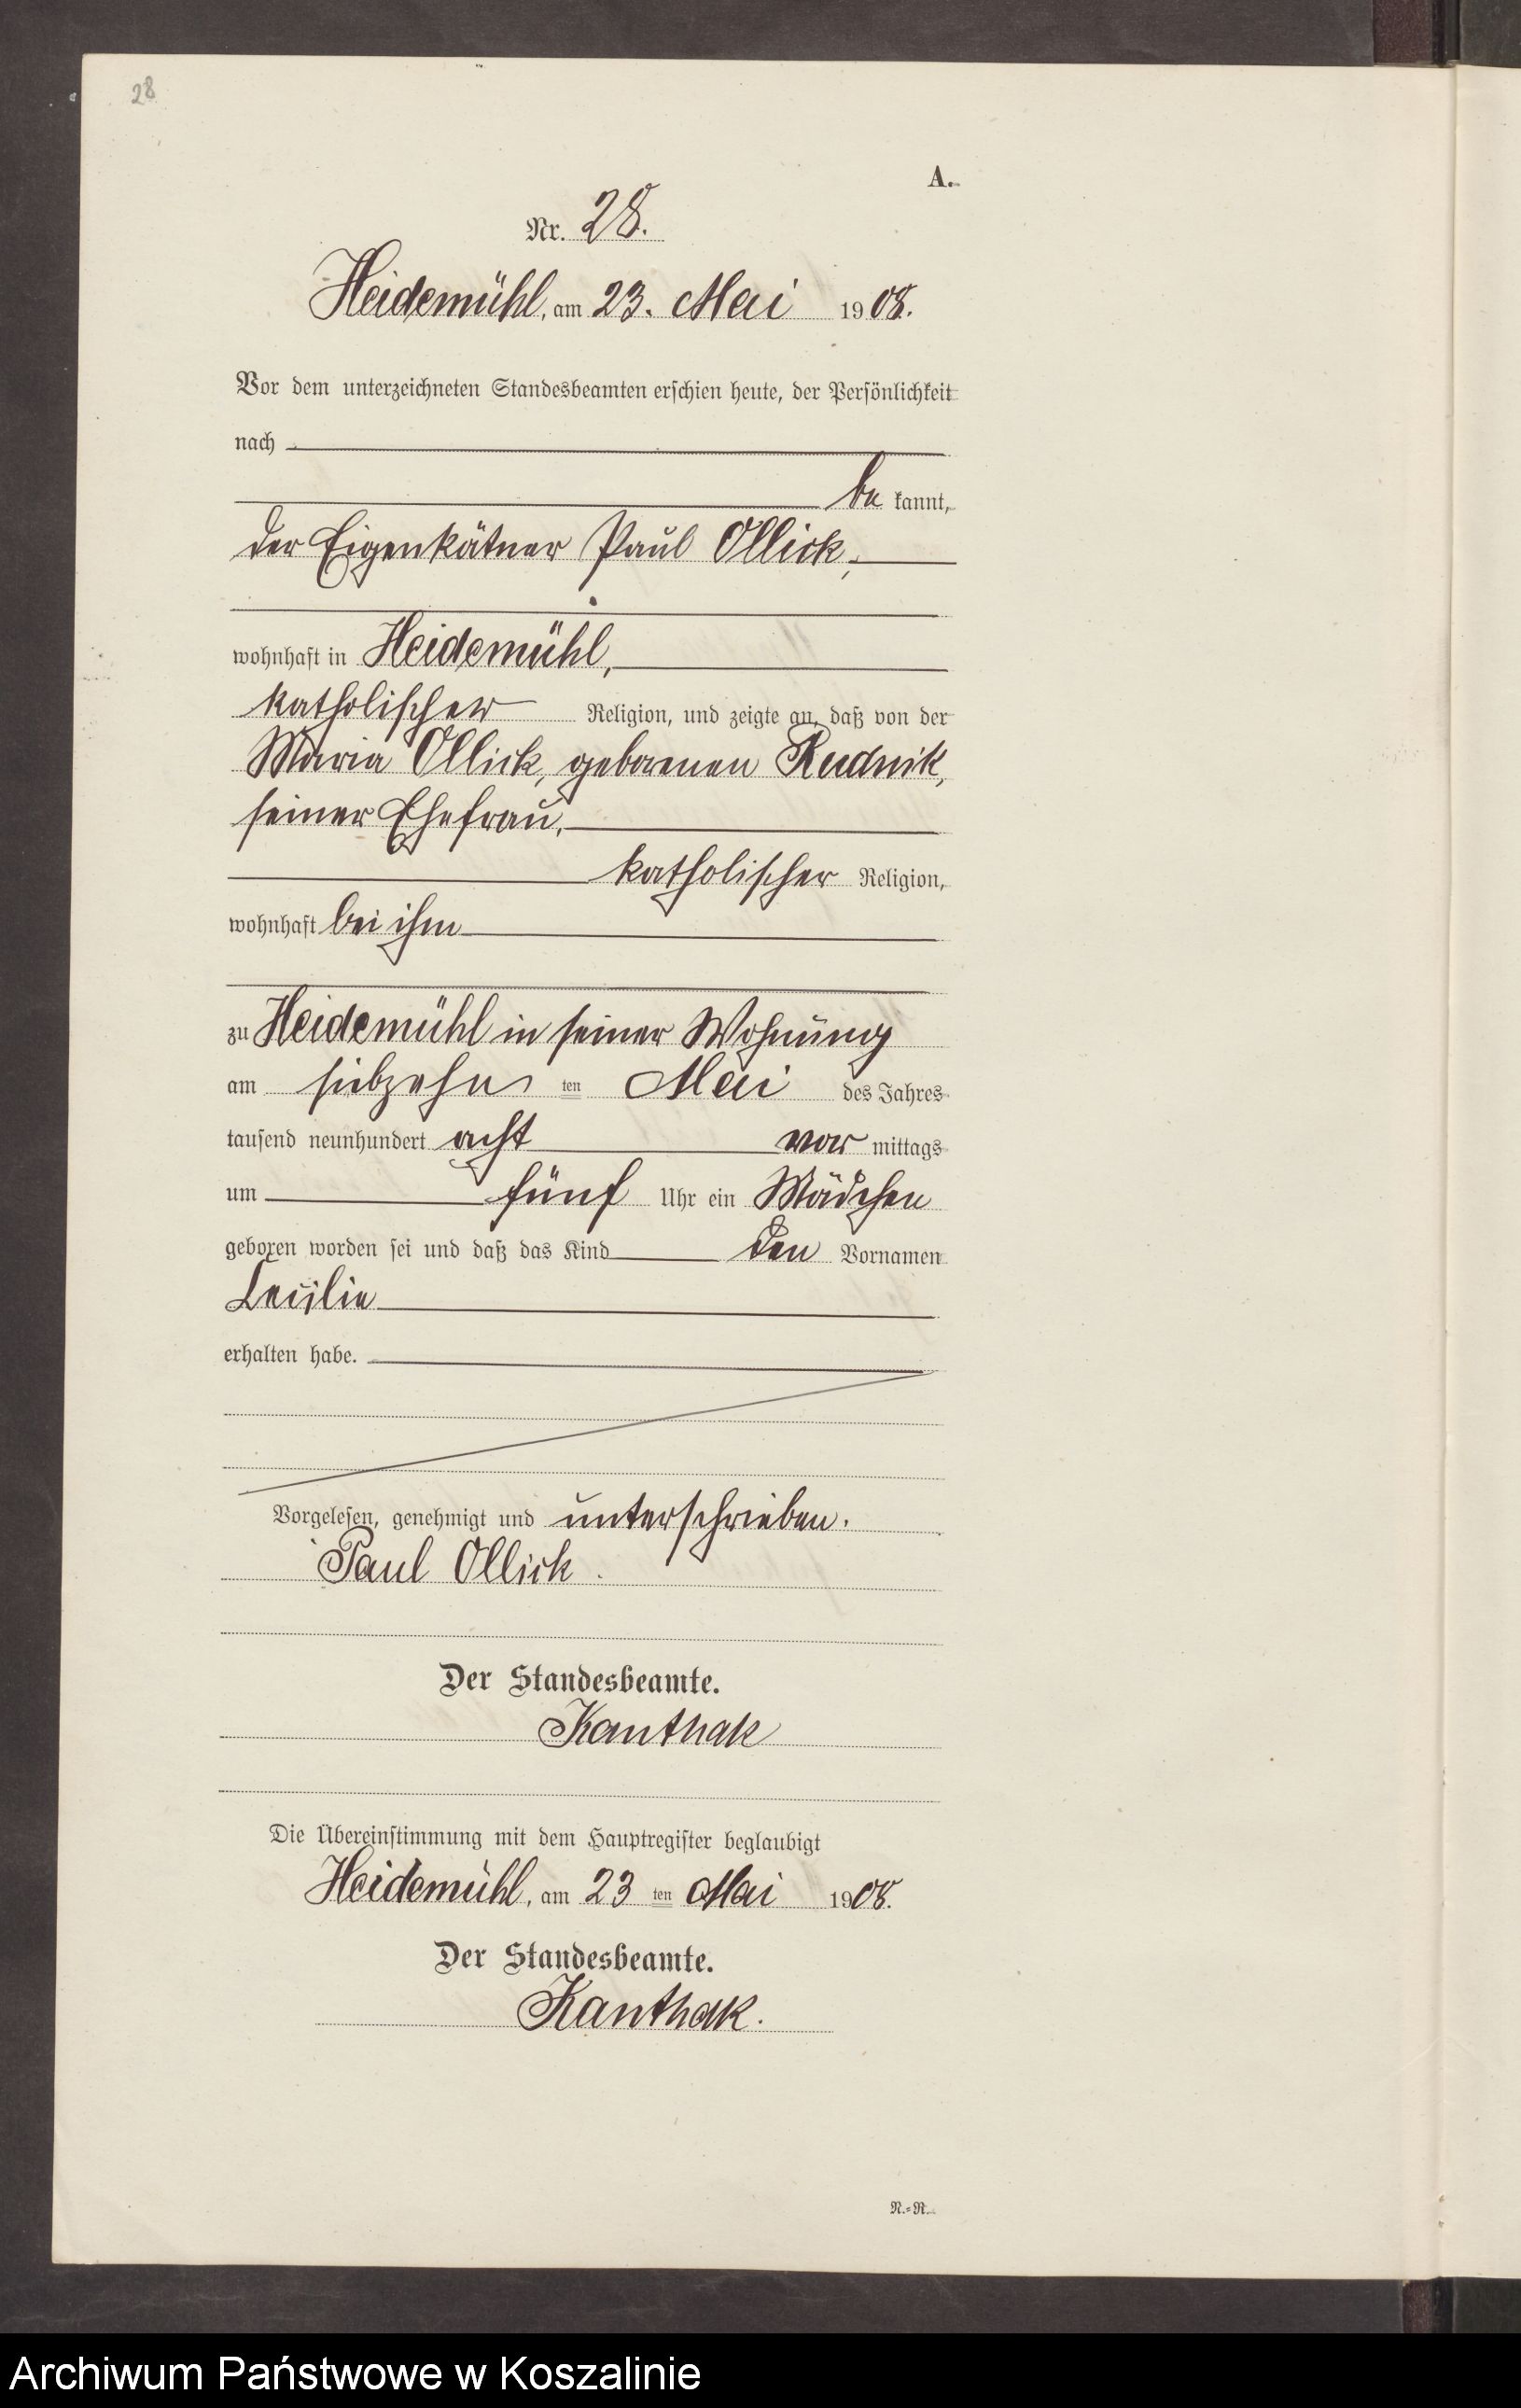 28
A.
Nr. 28.
Heidemühl, am 23. Mai 1908.
Vor dem unterzeichneten Standesbeamten erschien heute, der Persönlichkeit
nach
be kannt,
der Eigenkätner Paul Ollick,
wohnhaft in Heidemühl,
katholischer Religion, und zeigte an, daß von der
Maria Ollick, geborenen Rudnik,
seiner Ehefrau,
katholischer Religion,
wohnhaft bei ihm
zu Heidemühl in seiner Wohnung
am siebzehn ten Mai des Jahres
tausend neunhundert acht vor mittags
um fünf Uhr ein Mädchen
geboren worden sei und daß das Kind den Vornamen
Cecilie
erhalten habe.
Vorgelesen, genehmigt und unterschrieben.
Paul Ollick.
Der Standesbeamte.
Kanthak
Die Übereinstimmung mit dem Hauptregister beglaubigt
Heidemühl, am 23 ten Mai 1908.
Der Standesbeamte.
Kanthak.
N.=R.
Archiwum Państwowe w Koszalinie